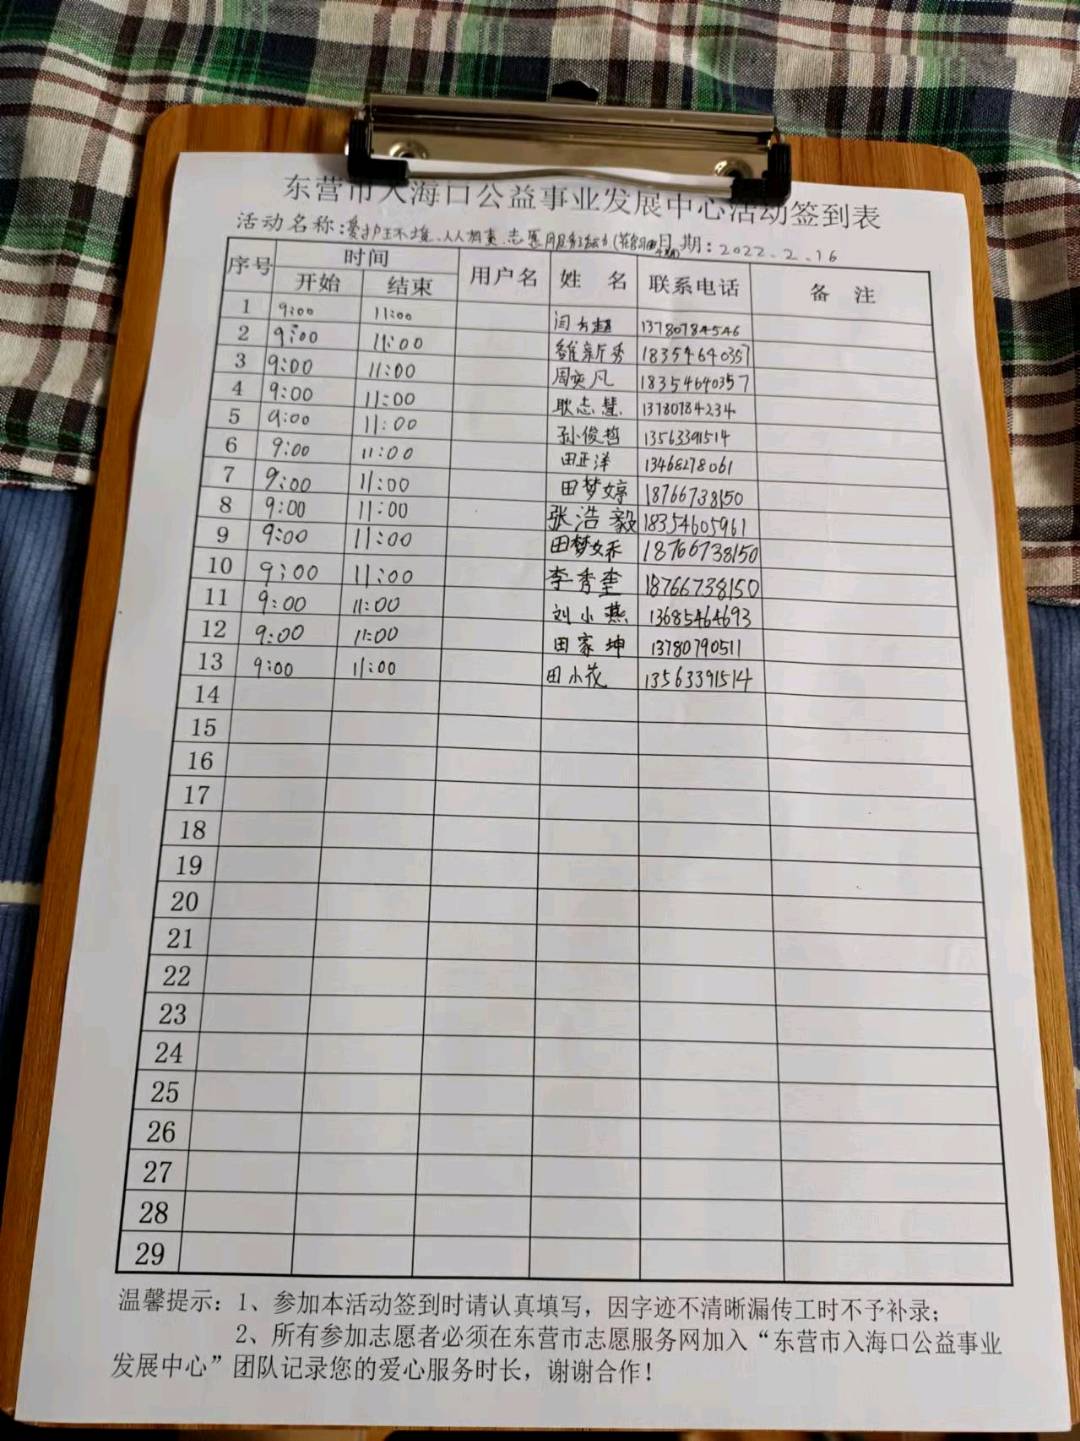 东营市入海口公益事业发展中心活动签到表
活动名称：爱护环境、人人有责、志愿服务活动 日期：2022.2.16
序号 时间 用户名 姓 名 联系电话 备 注
开始 结束
1 9:00 11:00 闫方超 13780784546
2 9:00 11:00 新秀 18354640357
3 9:00 11:00 周奕凡 18354640357
4 9:00 11:00 耿志慧 13780784234
5 9:00 11:00 孙俊哲 13563391514
6 9:00 11:00 田正洋 13468278061
7 9:00 11:00 田梦婷 18766738150
8 9:00 11:00 张浩毅 18354605961
9 9:00 11:00 田梦娇 18766738150
10 9:00 11:00 李秀奎 18766738150
11 9:00 11:00 刘小燕 13685464693
12 9:00 11:00 田家坤 13780790511
13 9:00 11:00 田小花 13563391514
14
15
16
17
18
19
20
21
22
23
24
25
26
27
28
29
温馨提示：1、参加本活动签到时请认真填写，因字迹不清晰漏传工时不予补录；
2、所有参加志愿者必须在东营市志愿服务网加入“东营市入海口公益事业
发展中心”团队记录您的爱心服务时长，谢谢合作！